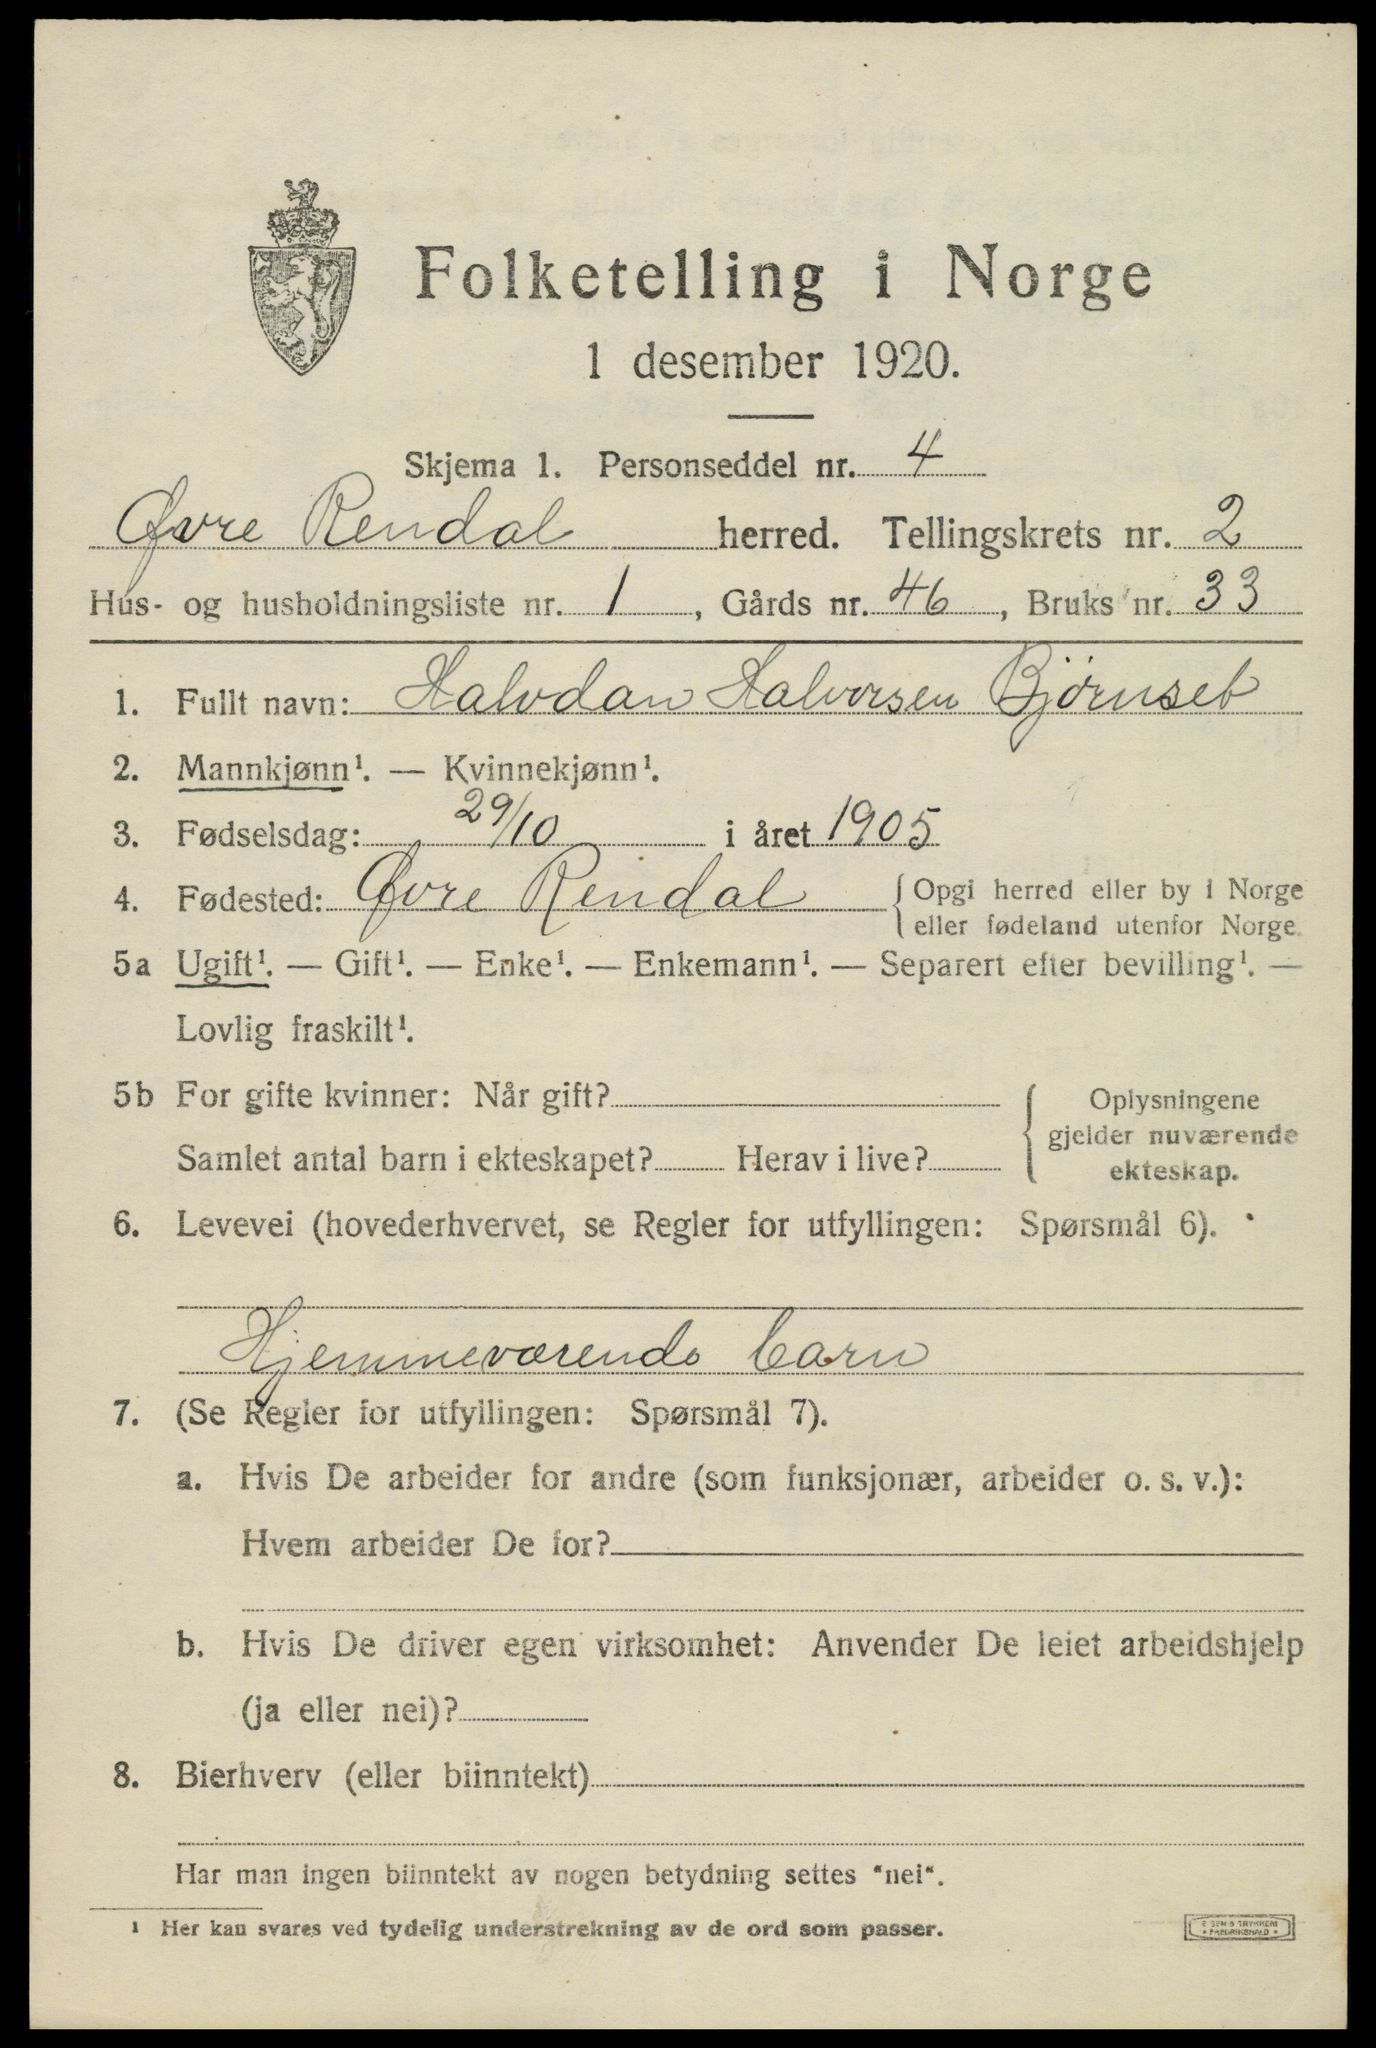 Folketelling i Norge
1 desember 1920.
Skjema 1. Personseddel nr. 4
Øvre Rendal herred. Tellingskrets nr. 2
Hus- og husholdningsliste nr. 1, Gårds nr. 46, Bruks nr. 33
1. Fullt navn: Halvdan Halvorsen Bjørnset
2. Mannkjønn¹. — Kvinnekjønn¹.
3. Fødselsdag: 29/10 i året 1905
4. Fødested: Øvre Rendal { Opgi herred eller by i Norge
eller fødeland utenfor Norge.
5a Ugift¹. — Gift¹. — Enke¹. — Enkemann¹. — Separert efter bevilling¹. —
Lovlig fraskilt¹.
5b For gifte kvinner: Når gift? { Oplysningene
gjelder nuværende
Samlet antal barn i ekteskapet? Herav i live? ekteskap.
6. Levevei (hovederhvervet, se Regler for utfyllingen: Spørsmål 6).
Hjemmeværende barn
7. (Se Regler for utfyllingen: Spørsmål 7).
a. Hvis De arbeider for andre (som funksjonær, arbeider o. s. v.):
Hvem arbeider De for?
b. Hvis De driver egen virksomhet: Anvender De leiet arbeidshjelp
(ja eller nei)?
8. Bierhverv (eller biinntekt)
Har man ingen biinntekt av nogen betydning settes "nei".
¹ Her kan svares ved tydelig understrekning av de ord som passer.
TRYKKERI
FREDRIKSHALD